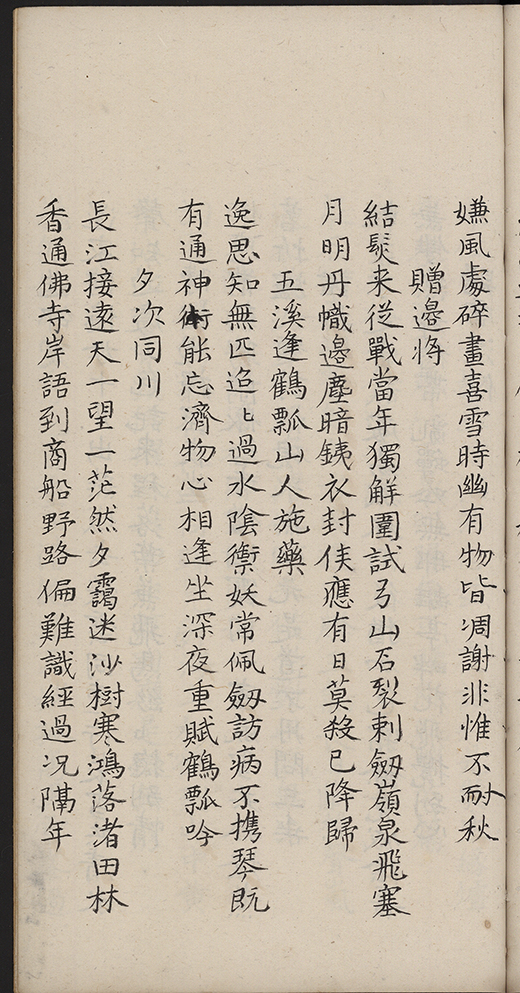 嫌風處碎畫喜雪時幽有物皆凋謝非惟不耐秋
贈邊将
結髮来從戰當年獨觧圍試弓山石裂刺劔嶺泉飛塞
月明丹幟邊塵暗銕衣封侯應有日莫殺已降歸
五溪逢鶴瓢山人施藥
逸思知無匹迢〻過水陰禦妖常佩劔訪病不携琴既
有通神術能忘濟物心相逢坐深夜重賦鶴瓢吟
夕次同川
長江接遠天一望一茫然夕靄迷沙樹寒鴻落渚田林
香通佛寺岸語到商船野路偏難識經過况隔年